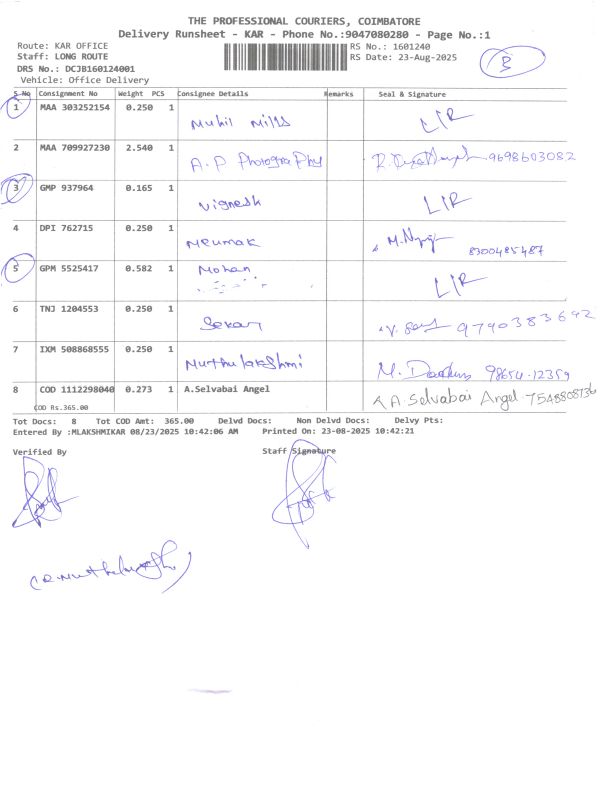 THE PROFESSIONAL COURIERS, COIMBATORE
Delivery Runsheet - KAR - Phone No.:9047080280 - Page No.:1
Route: KAR OFFICE RS No.: 1601240
Staff: LONG ROUTE RS Date: 23-Aug-2025
DRS No.: DCJB160124001
Vehicle: Office Delivery
3
S No Consignment No Weight PCS Consignee Details Remarks Seal & Signature
1 MAA 303252154 0.250 1 Muhil Mills L/R
2 MAA 709927230 2.540 1 A.P Photography 9698603082
3 GMP 937964 0.165 1 Vignesh L/R
4 DPI 762715 0.250 1 Neumak 8300485487
5 GPM 5525417 0.582 1 Mohan L/R
6 TNJ 1204553 0.250 1 Sekar 9790383692
7 IXM 508868555 0.250 1 Muthulakshmi 98654-12359
8 COD 1112298040 0.273 1 A.Selvabai Angel A.Selvabai Angel 7548808736
COD Rs.365.00
Tot Docs: 8 Tot COD Amt: 365.00 Delvd Docs: Non Delvd Docs: Delvy Pts:
Entered By :MLAKSHMIKAR 08/23/2025 10:42:06 AM Printed On: 23-08-2025 10:42:21
Verified By Staff Signature